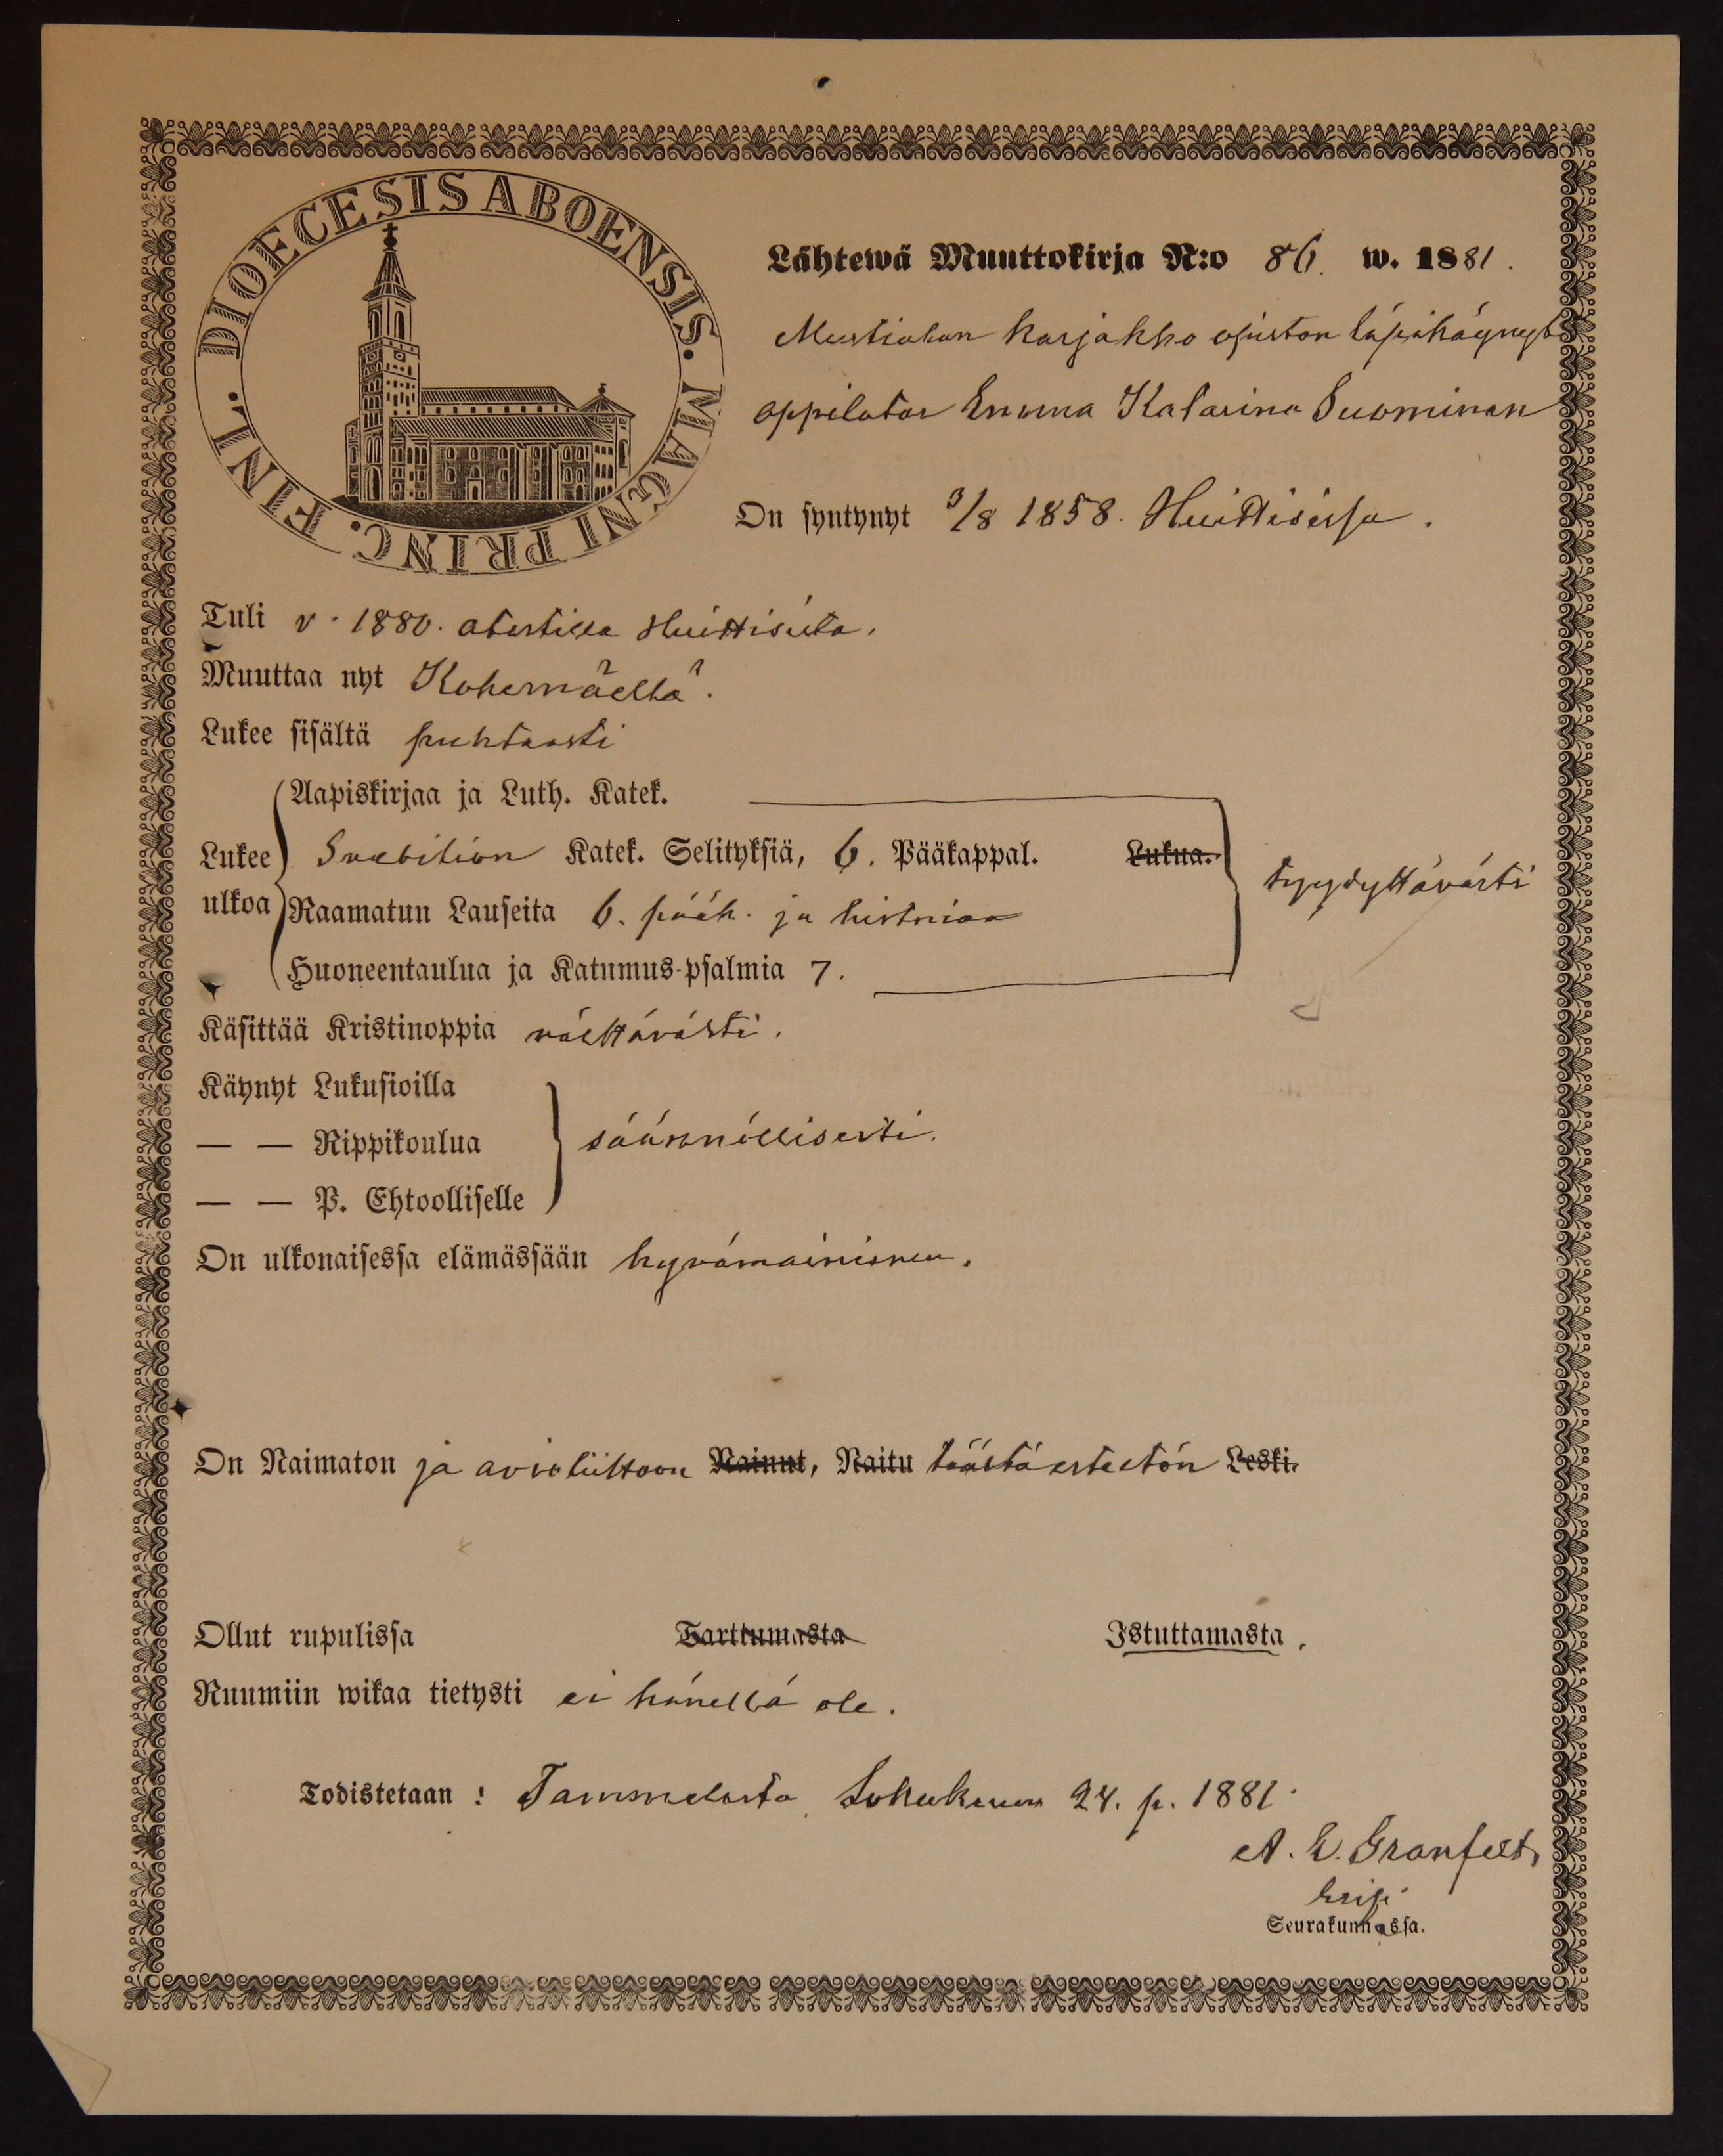 DIOECESIS ABOENSIS. MAGNI PRINC. FINL.
Lähtewä Muuttokirja N:o 86. w. 1881.
Mustialan karjakko opiston läpikäynyt
oppilatar Emma Katarina Suominen
On syntynyt 3/8 1858. Huittisissa.
Tuli v. 1880. atestilla Huittisista.
Muuttaa nyt Kokemäellä.
Lukee sisältä puhtaasti
Aapiskirjaa ja Luth. Katek.
Lukee Svebilion Katek. Selityksiä, 6. Pääkappal. Lukua. tyydyttävästi
ulkoa Raamatun Lauseita 6. pääk. ja historiaa
Huoneentaulua ja Katumus-psalmia 7.
Käsittää Kristinoppia välttävästi.
Käynyt Lukusioilla
— — Rippikoulua säännöllisesti.
— — P. Ehtoolliselle
On ulkonaisessa elämässään hyvämaininen.
On Naimaton ja avioliittoon Nainut, Naitu täältä esteetön Leski.
Ollut rupulissa Tarttumasta Istuttamasta.
Ruumiin wikaa tietysti ei hänellä ole.
Todistetaan: Tammelasta Lokakuun 24. p. 1881.
A. E. Granfelt,
Seurakunnassa.